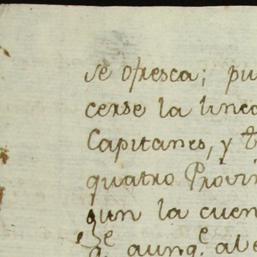 se ofresca; pu
cerse la linea
Capitanes, y
quatro Provin
gun la cuen
q.e aunq.e al